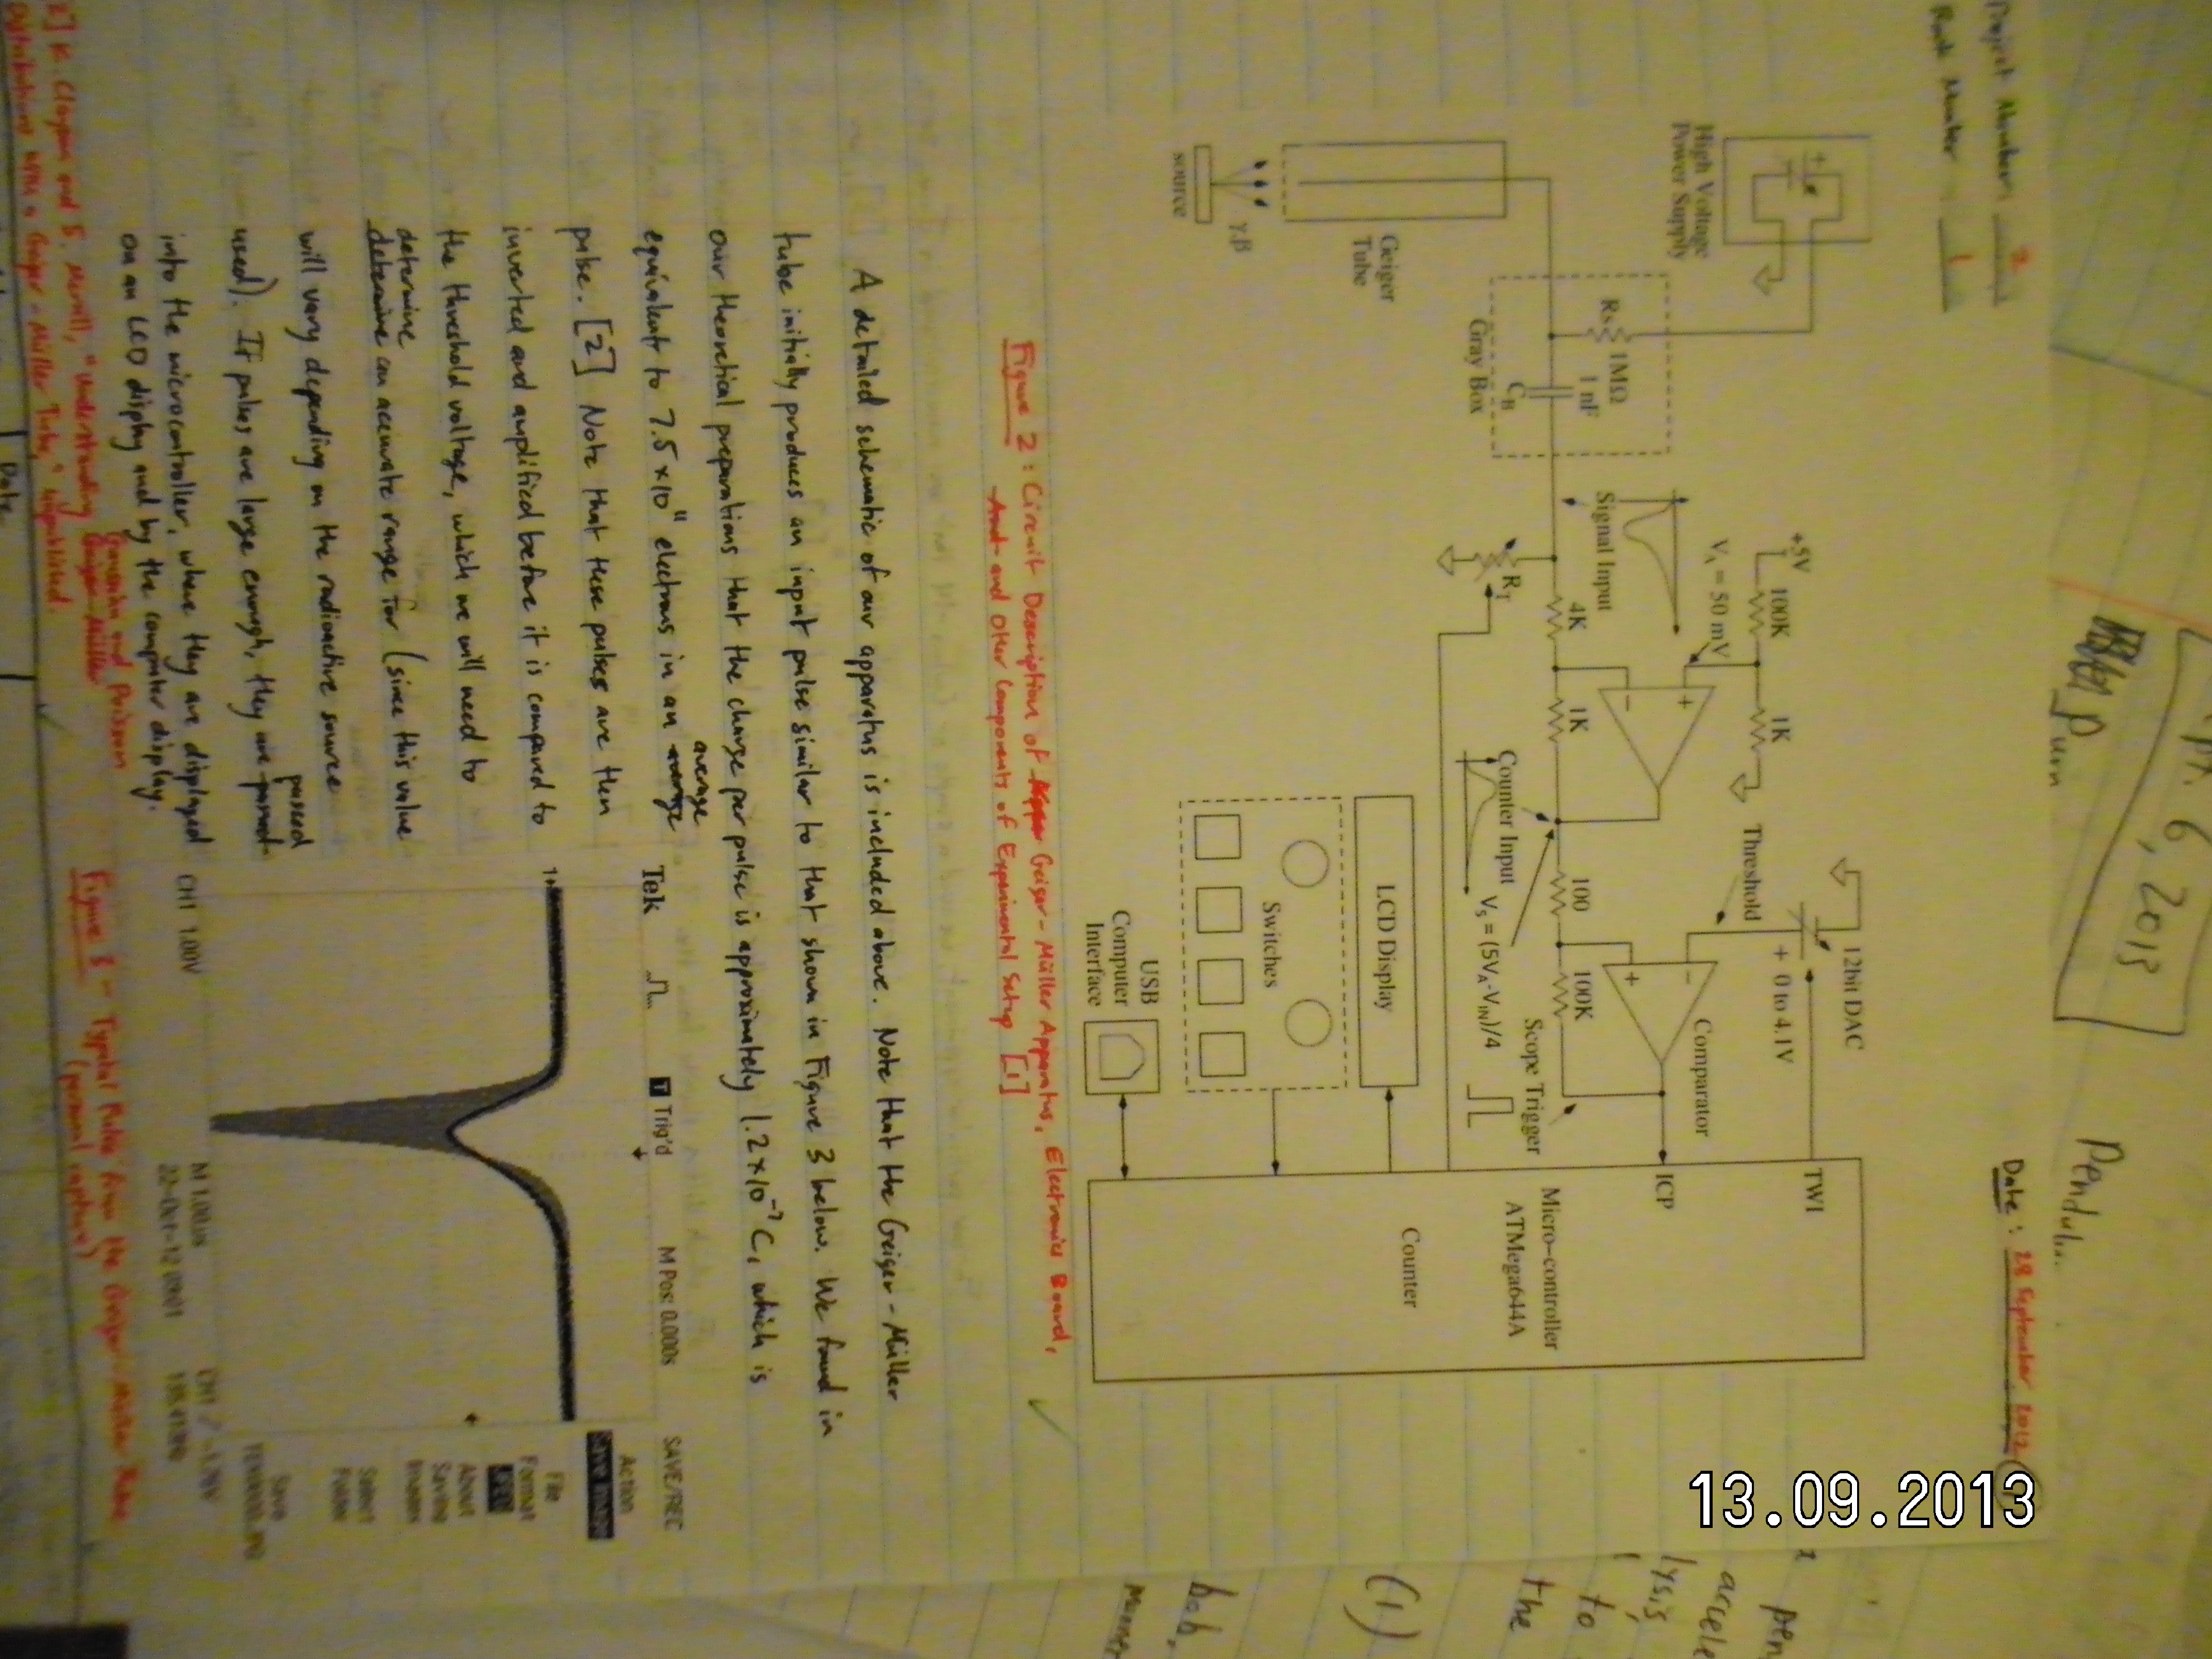 Project Number: 2
Page Number 1
Date: 28 September 2012
High Voltage
Power Supply
Geiger
Tube
γ,β
source
Rs
1MΩ
1 nF
CB
Gray Box
Signal Input
RT
+5V
100K
1K
VA = 50 mV
4K
1K
Counter Input
VS = (5VA-VIN)/4
Threshold
12bit DAC
+ 0 to 4.1V
Comparator
100
100K
Scope Trigger
TWI
ICP
Micro-controller
ATMega644A
Counter
LCD Display
Switches
USB
Computer
Interface
Figure 2: Circuit Description of Geiger-Müller Apparatus, Electronics Board,
And and Other Components of Experimental Setup [1]
A detailed schematic of our apparatus is included above. Note that the Geiger-Müller
tube initially produces an input pulse similar to that shown in Figure 3 below. We found in
our theoretical preparations that the charge per pulse is approximately 1.2×10⁻⁷ C, which is
equivalent to 7.5×10¹¹ electrons in an average average
pulse. [2] Note that these pulses are then
inverted and amplified before it is compared to
the threshold voltage, which we will need to
determine
determine an accurate range for (since this value
will vary depending on the radioactive source
used). If pulses are large enough, they are passed
into the microcontroller, where they are displayed
on an LCD display and by the computer display.
Tek
T Trig'd
M Pos: 0.000s
SAVE/REC
Action
Save Image
File
Format
About
Saving
Images
Select
Folder
Save
1+
CH1 1.00V
M 1.00us
CH1
22-Oct-12
Figure 3 - Typical Pulse from the Geiger-Müller Tube
(personal capture)
2] K. Clayson and S. Merrill, "Understanding Gaussian and Poisson
Distributions with a Geiger-Müller Tube," unpublished.
Date
6, 2013
Pendulu
pen
accele
lysis,
to
the
(1)
bob,
13.09.2013